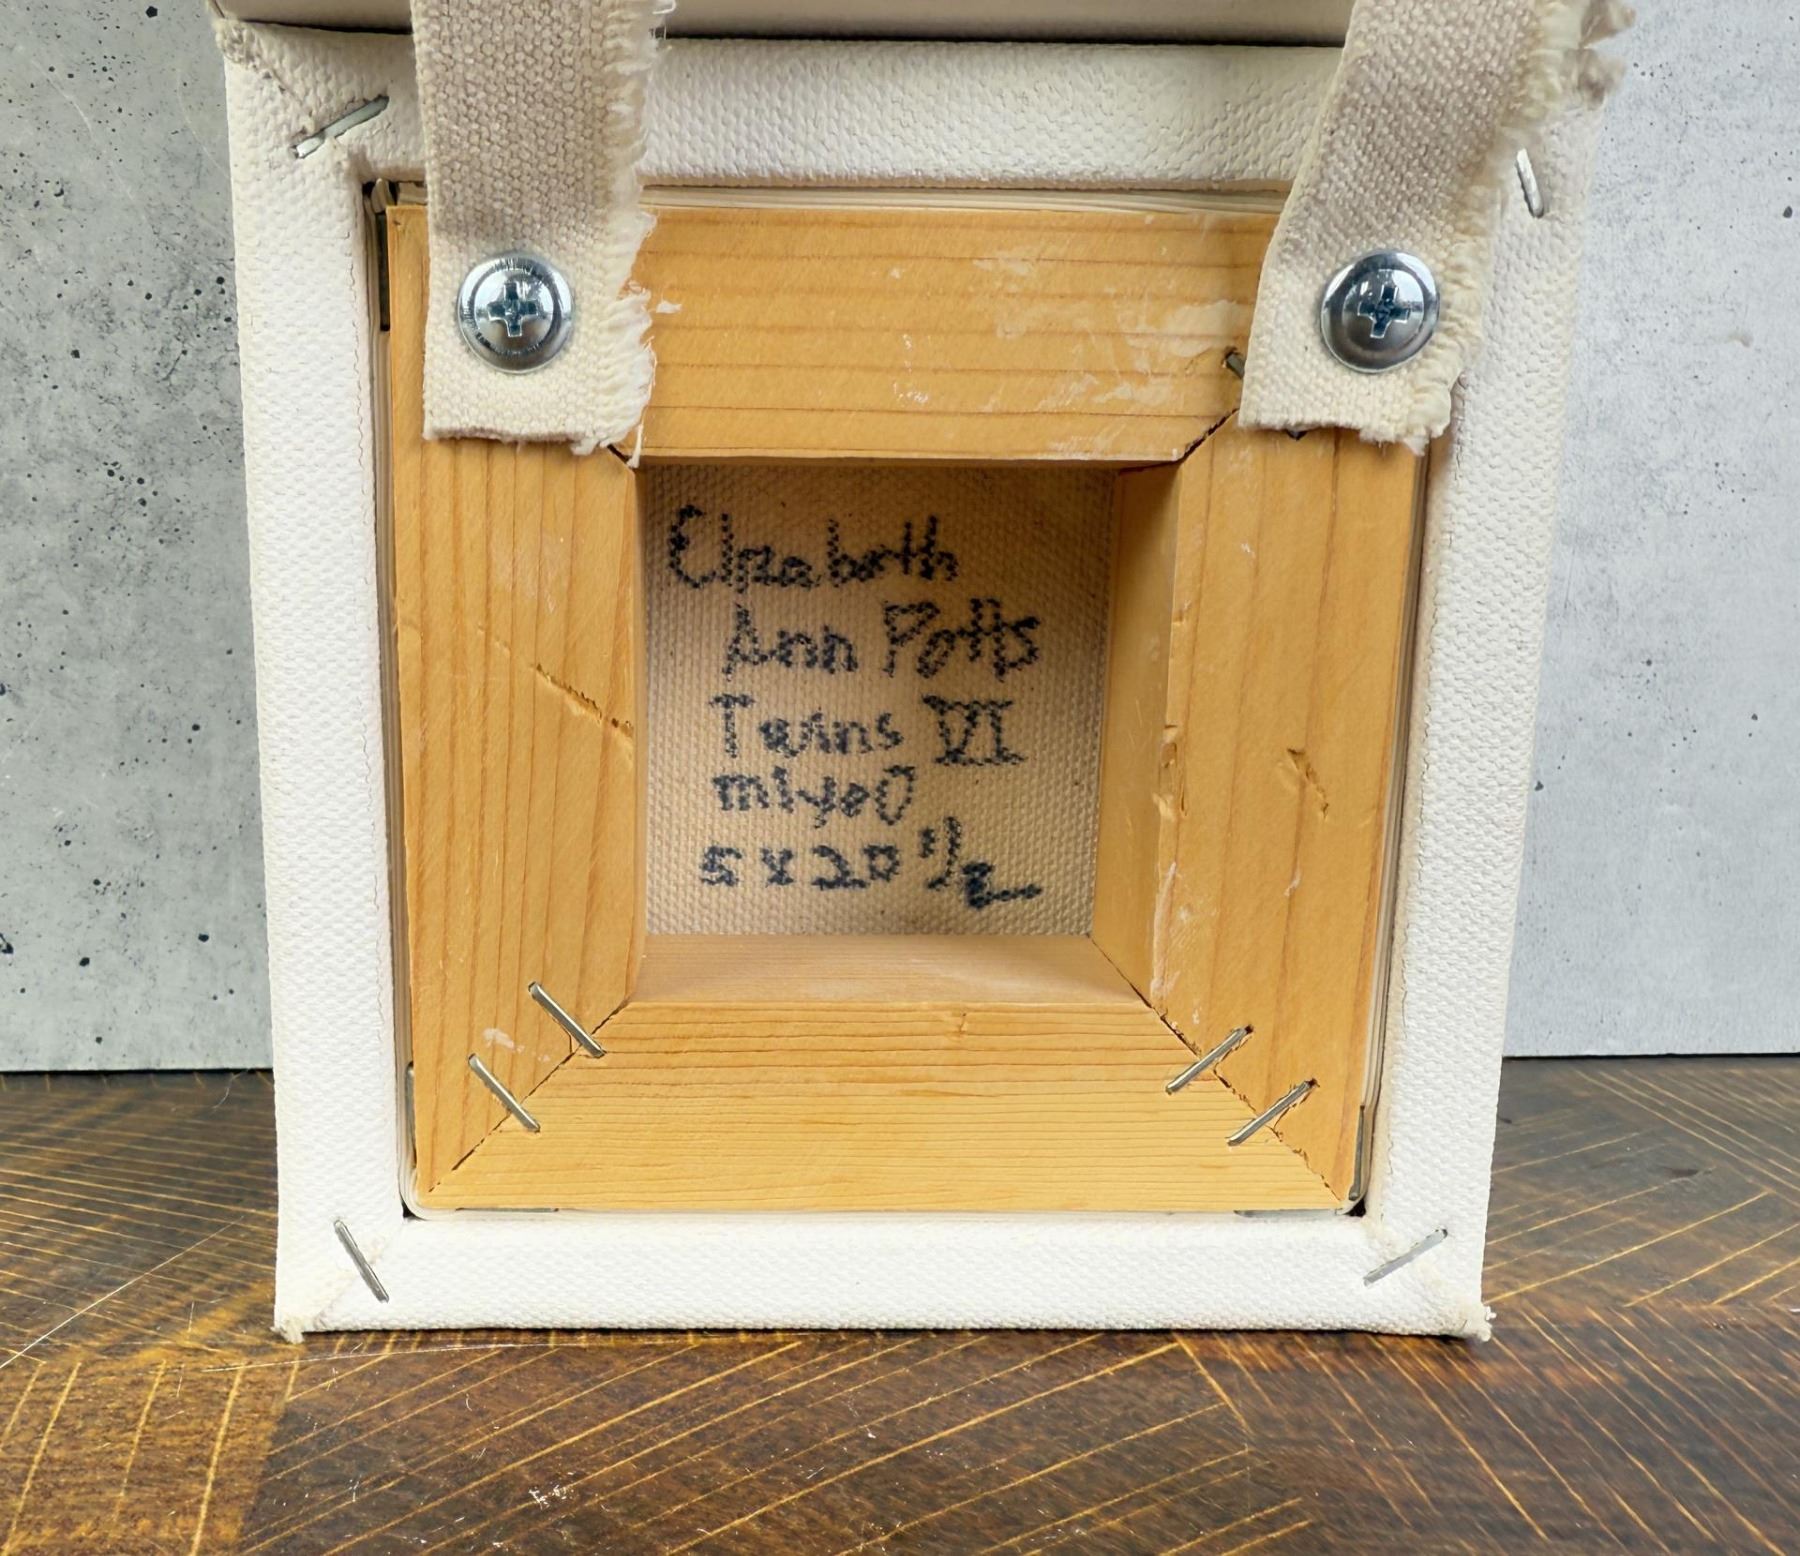 Elizabeth
Ann Potts
Twins VI
5 x 20 1/2